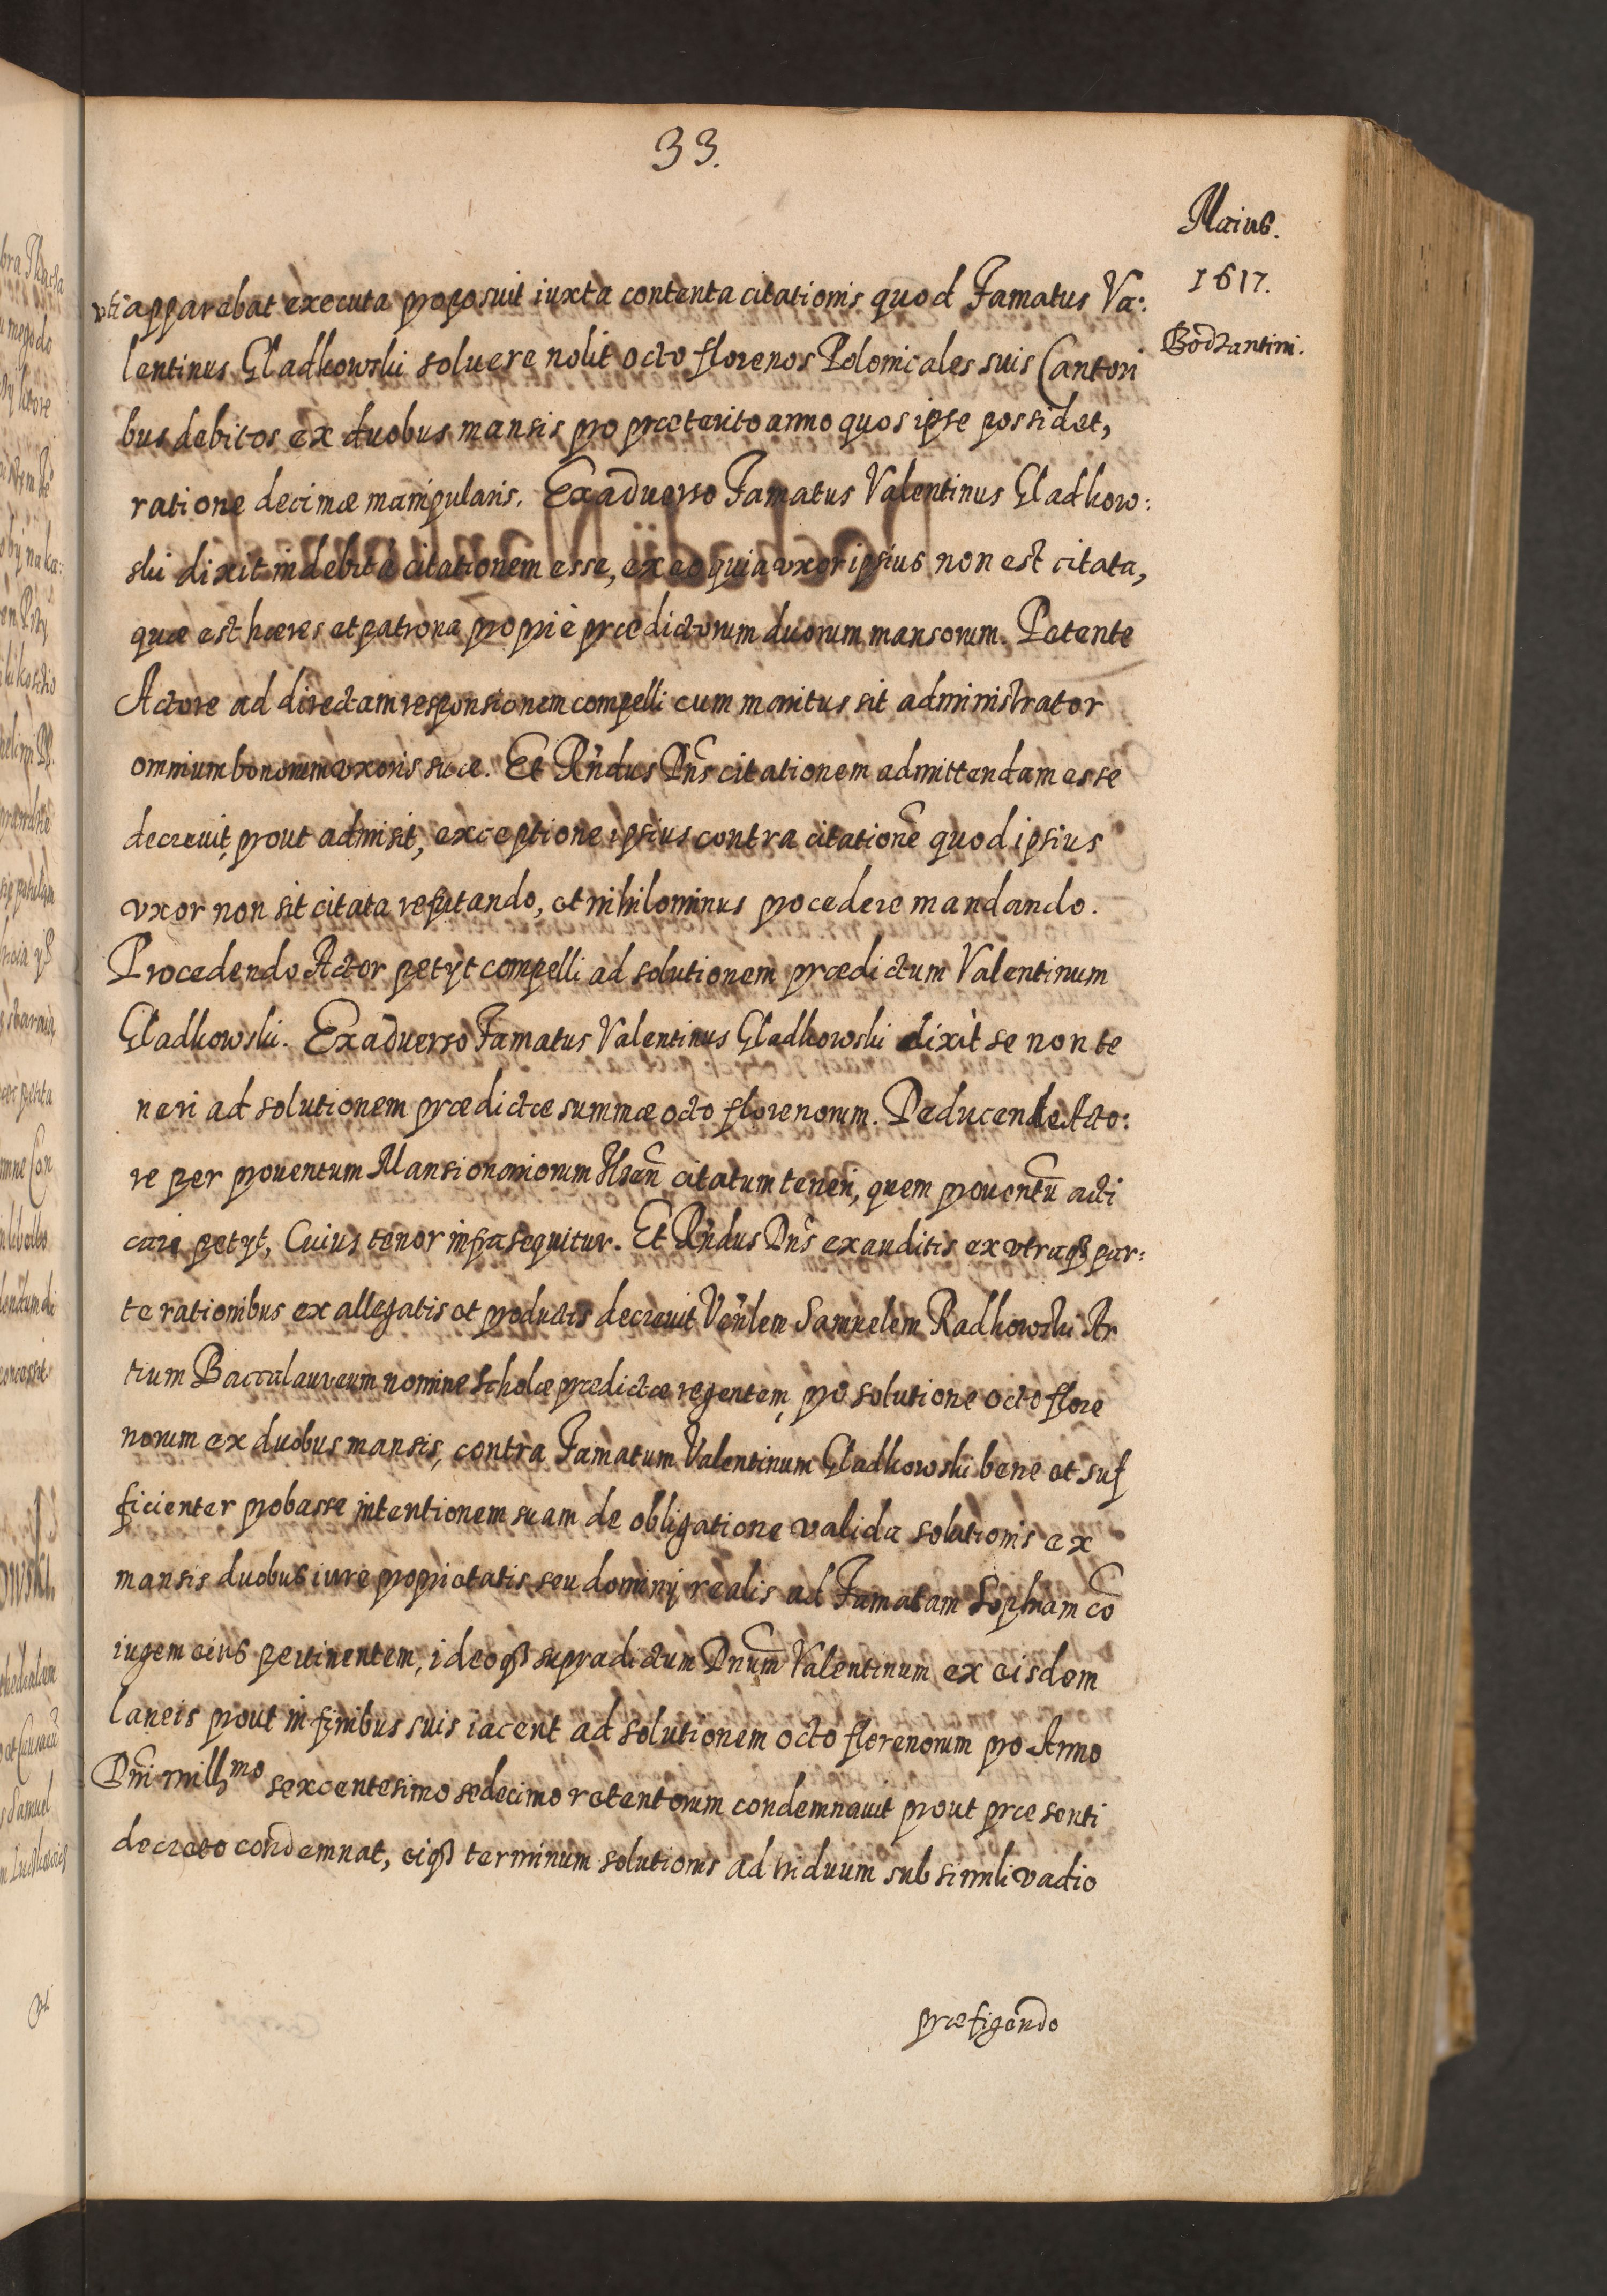 33.
Maius.
1617.
Bodzantini.
vti apparebat executa proposuit iuxta contenta citationis quod Famatus Va:
lentinus Gladkowski soluere nolit octo florenos Polonicales suis Cantori
bus debitos ex duobus mansis pro præterito anno quos ipse possidet,
ratione decimæ manipularis. Exaduerso Famatus Valentinus Gladkow:
ski dixit indebitè citationem esse, ex eo quia vxor ipsius non est citata,
quæ est hæres et patrona propriè prædictorum duorum mansorum. Petente
Actore ad directam responsionem compelli cum maritus sit administrator
omnium bonorum vxoris suæ. Et Rñdus Dñs citationem admittendam esse
decreuit, prout admisit, exceptione ipsius contra citationē quod ipsius
vxor non sit citata refutando, et nihilominus procedere mandando.
Procedendo Actor petyt compelli ad solutionem prædictum Valentinum
Gladkowski. Exaduerso Famatus Valentinus Gladkowski dixit se non te
neri ad solutionem prædictæ summæ octo florenorum. Deducende Acto:
re per prouentum Mansionariorum citatum teneri, quem prouentū acti
cari petyt, Cuius tenor infra sequitur. Et Rñdus Dñs exauditis ex vtraqȝ par:
te rationibus ex allegatis et productis decreuit Veñlem Samuelem Radkowski Ar
tium Baccalaureum nomine scholæ prædictæ regentem, pro solutione octo flore
norum ex duobus mansis, contra Famatum Valentinum Gladkowski bene et suf
ficienter probasse intentionem suam de obligatione valida solutionis ex
mansis duobus iure proprietatis seu dominij realis ad Famatam Sophiam cō
iugem eius pertinentem, ideoqȝ supradictum Dñum Valentinum ex eisdem
laneis prout in finibus suis iacent ad solutionem octo florenorum pro Anno
Dñi millmo sexcentesimo sedecimo retentorum condemnauit prout præsenti
decreto condemnat, eiqȝ terminum solutionis ad triduum sub simili vadio
præfigendo